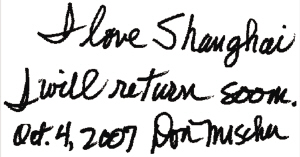 I love Shanghai
I will return soon.
Oct. 4, 2007 Don Mischer